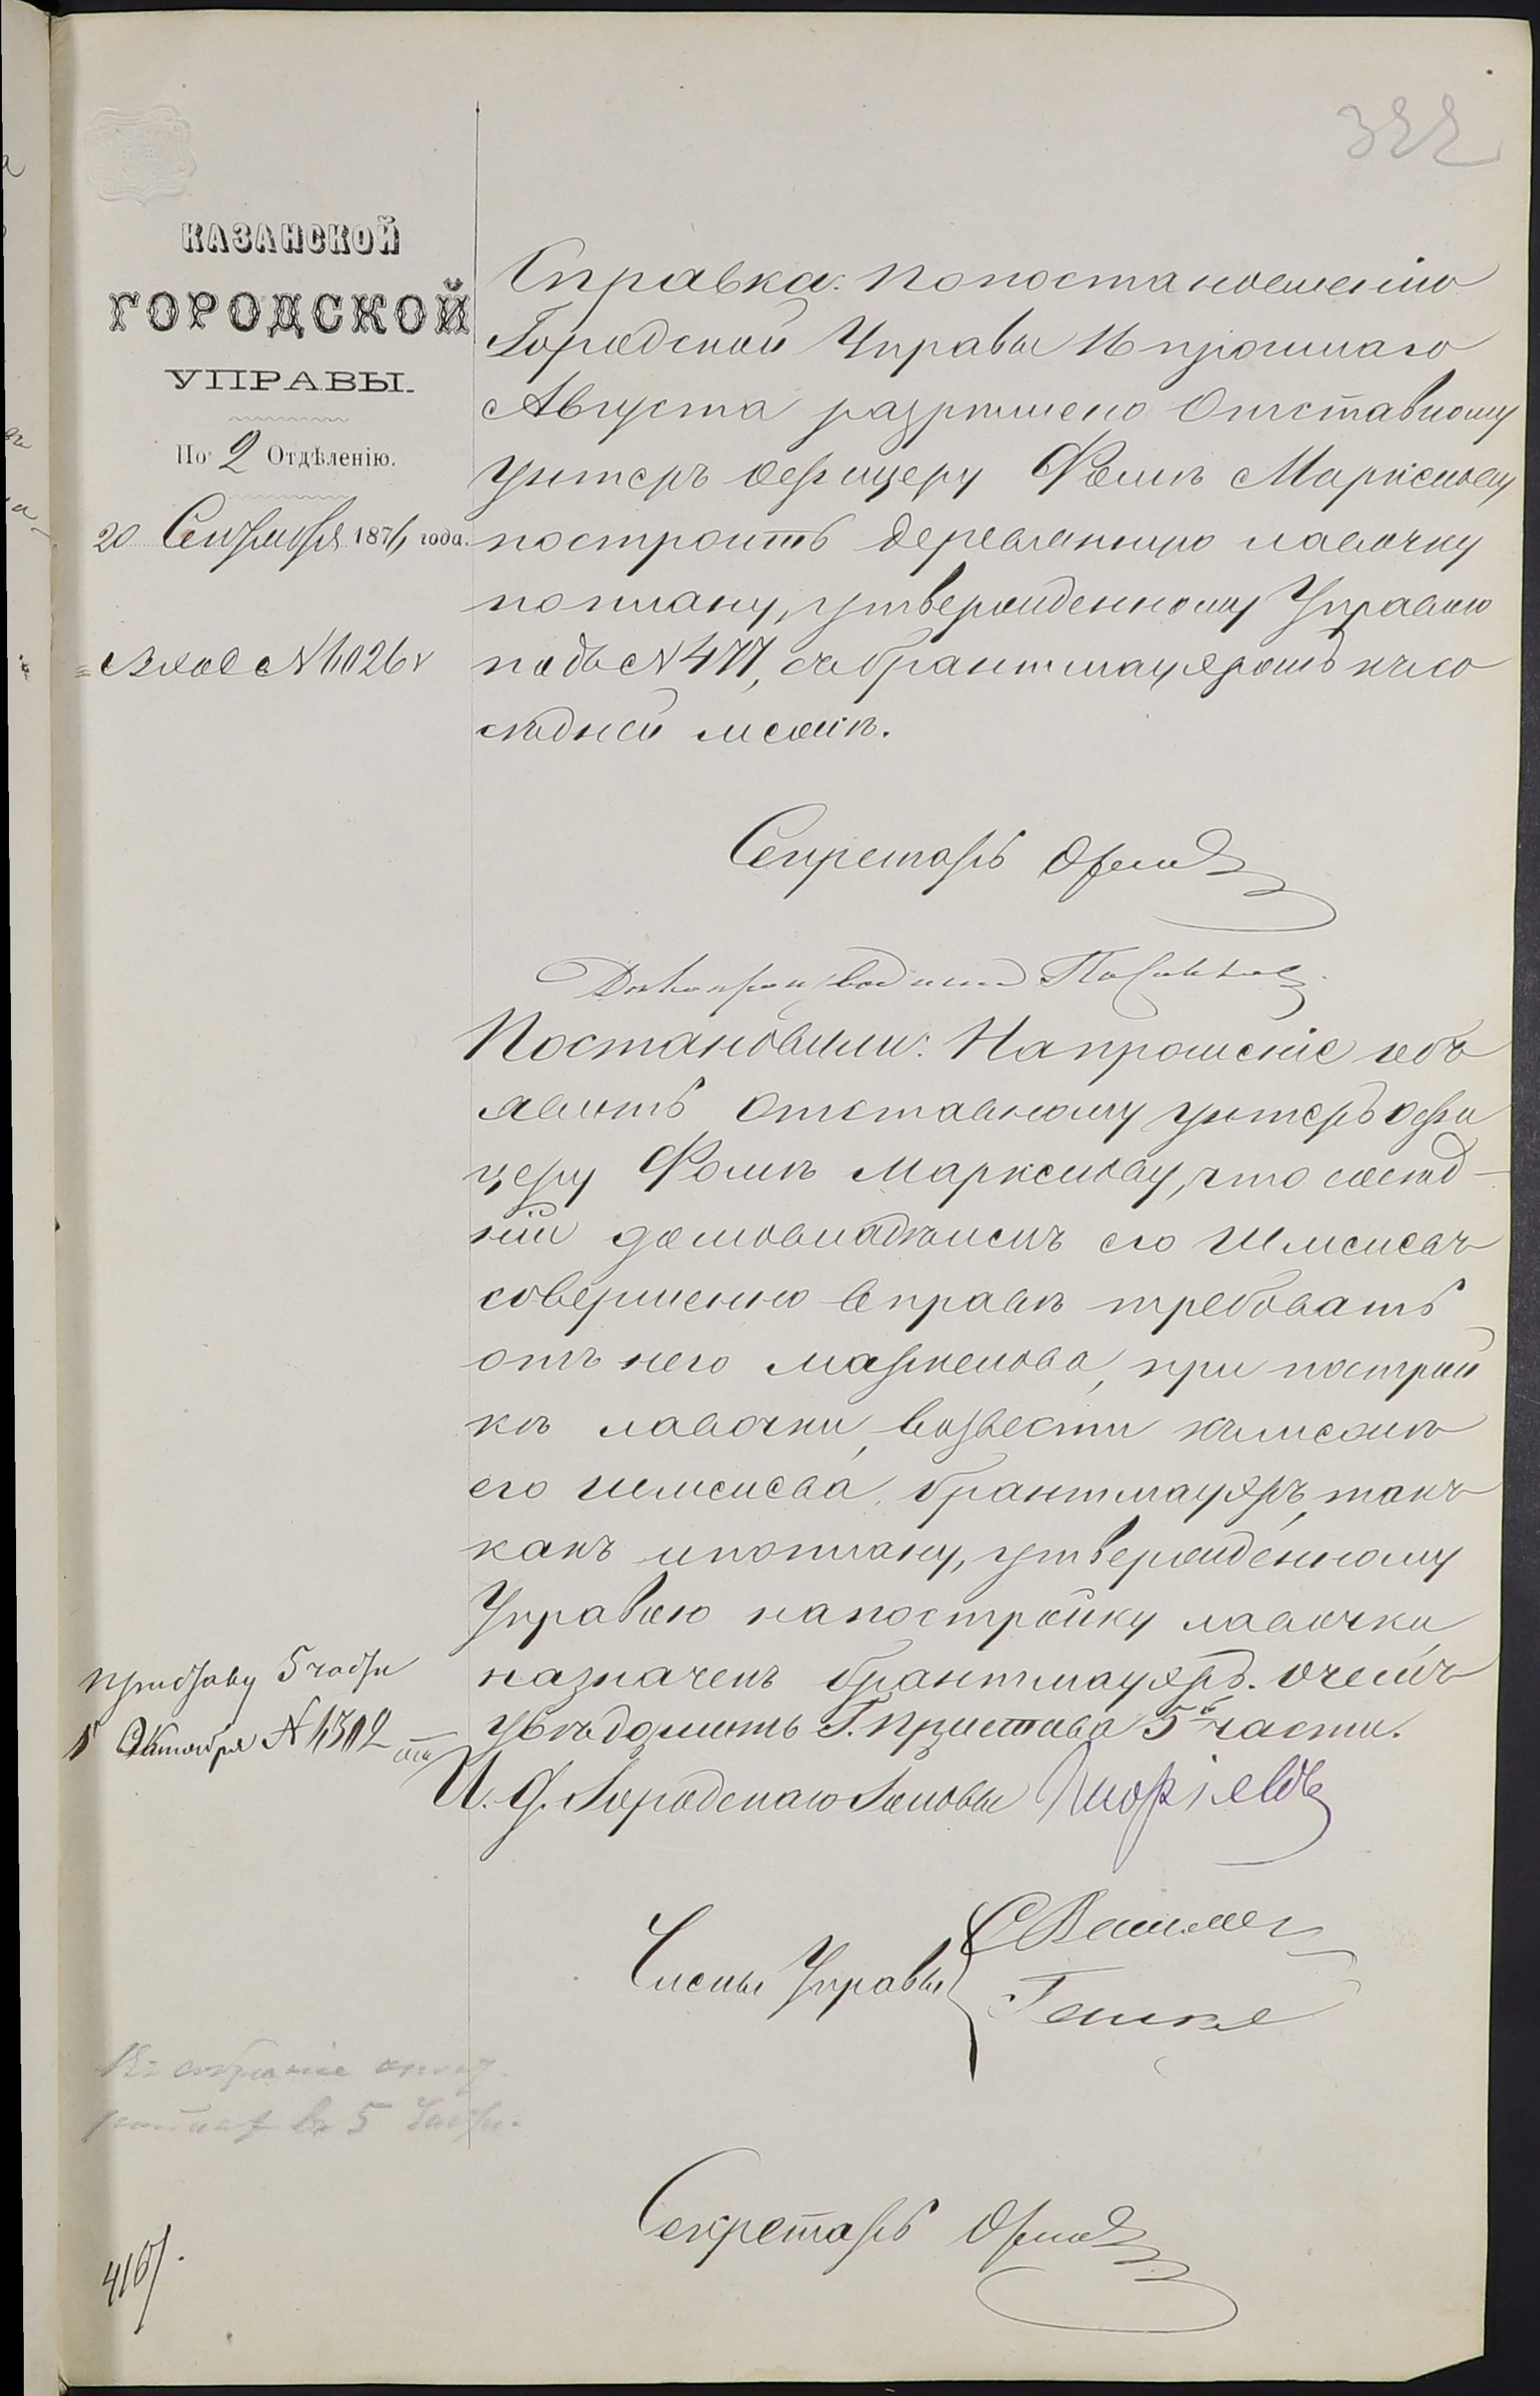 322
КАЗАНСКОЙ
ГОРОДСКОЙ
УПРАВЫ.
По 2 Отдѣленію.
20 Сентября 1876 года.
Справка. По постановленію
Городской Управы 16 прошлаго
Августа разрѣшено Отставному
унтеръ офицеру Фомѣ Маркелову
построить деревянную лавочку
по плану, утвержденному Управою
подъ № 477, съ брантмауэромъ къ со
сѣдней межѣ.
Секретарь Орлов
Дѣлопроизводитель
Постановили: На прошеніе объ
явить отставному унтеръ офи
церу Фомѣ Маркелову, что сосѣд-
ній домовладѣлецъ его
совершенно вправѣ требовать
отъ него Маркелова, при построй
кѣ лавочки, возвести къ межѣ
его брантмауэръ, такъ
какъ и по плану, утвержденному
Управою на постройку лавочки
назначенъ брантмауэръ. О чемъ
увѣдомить Г. Пристава 5й части.
Приставу 5 части
Октября №
И. д. Городскаго Головы
Члены Управы
Въ собраніе
въ 5 части
Секретарь Орлов